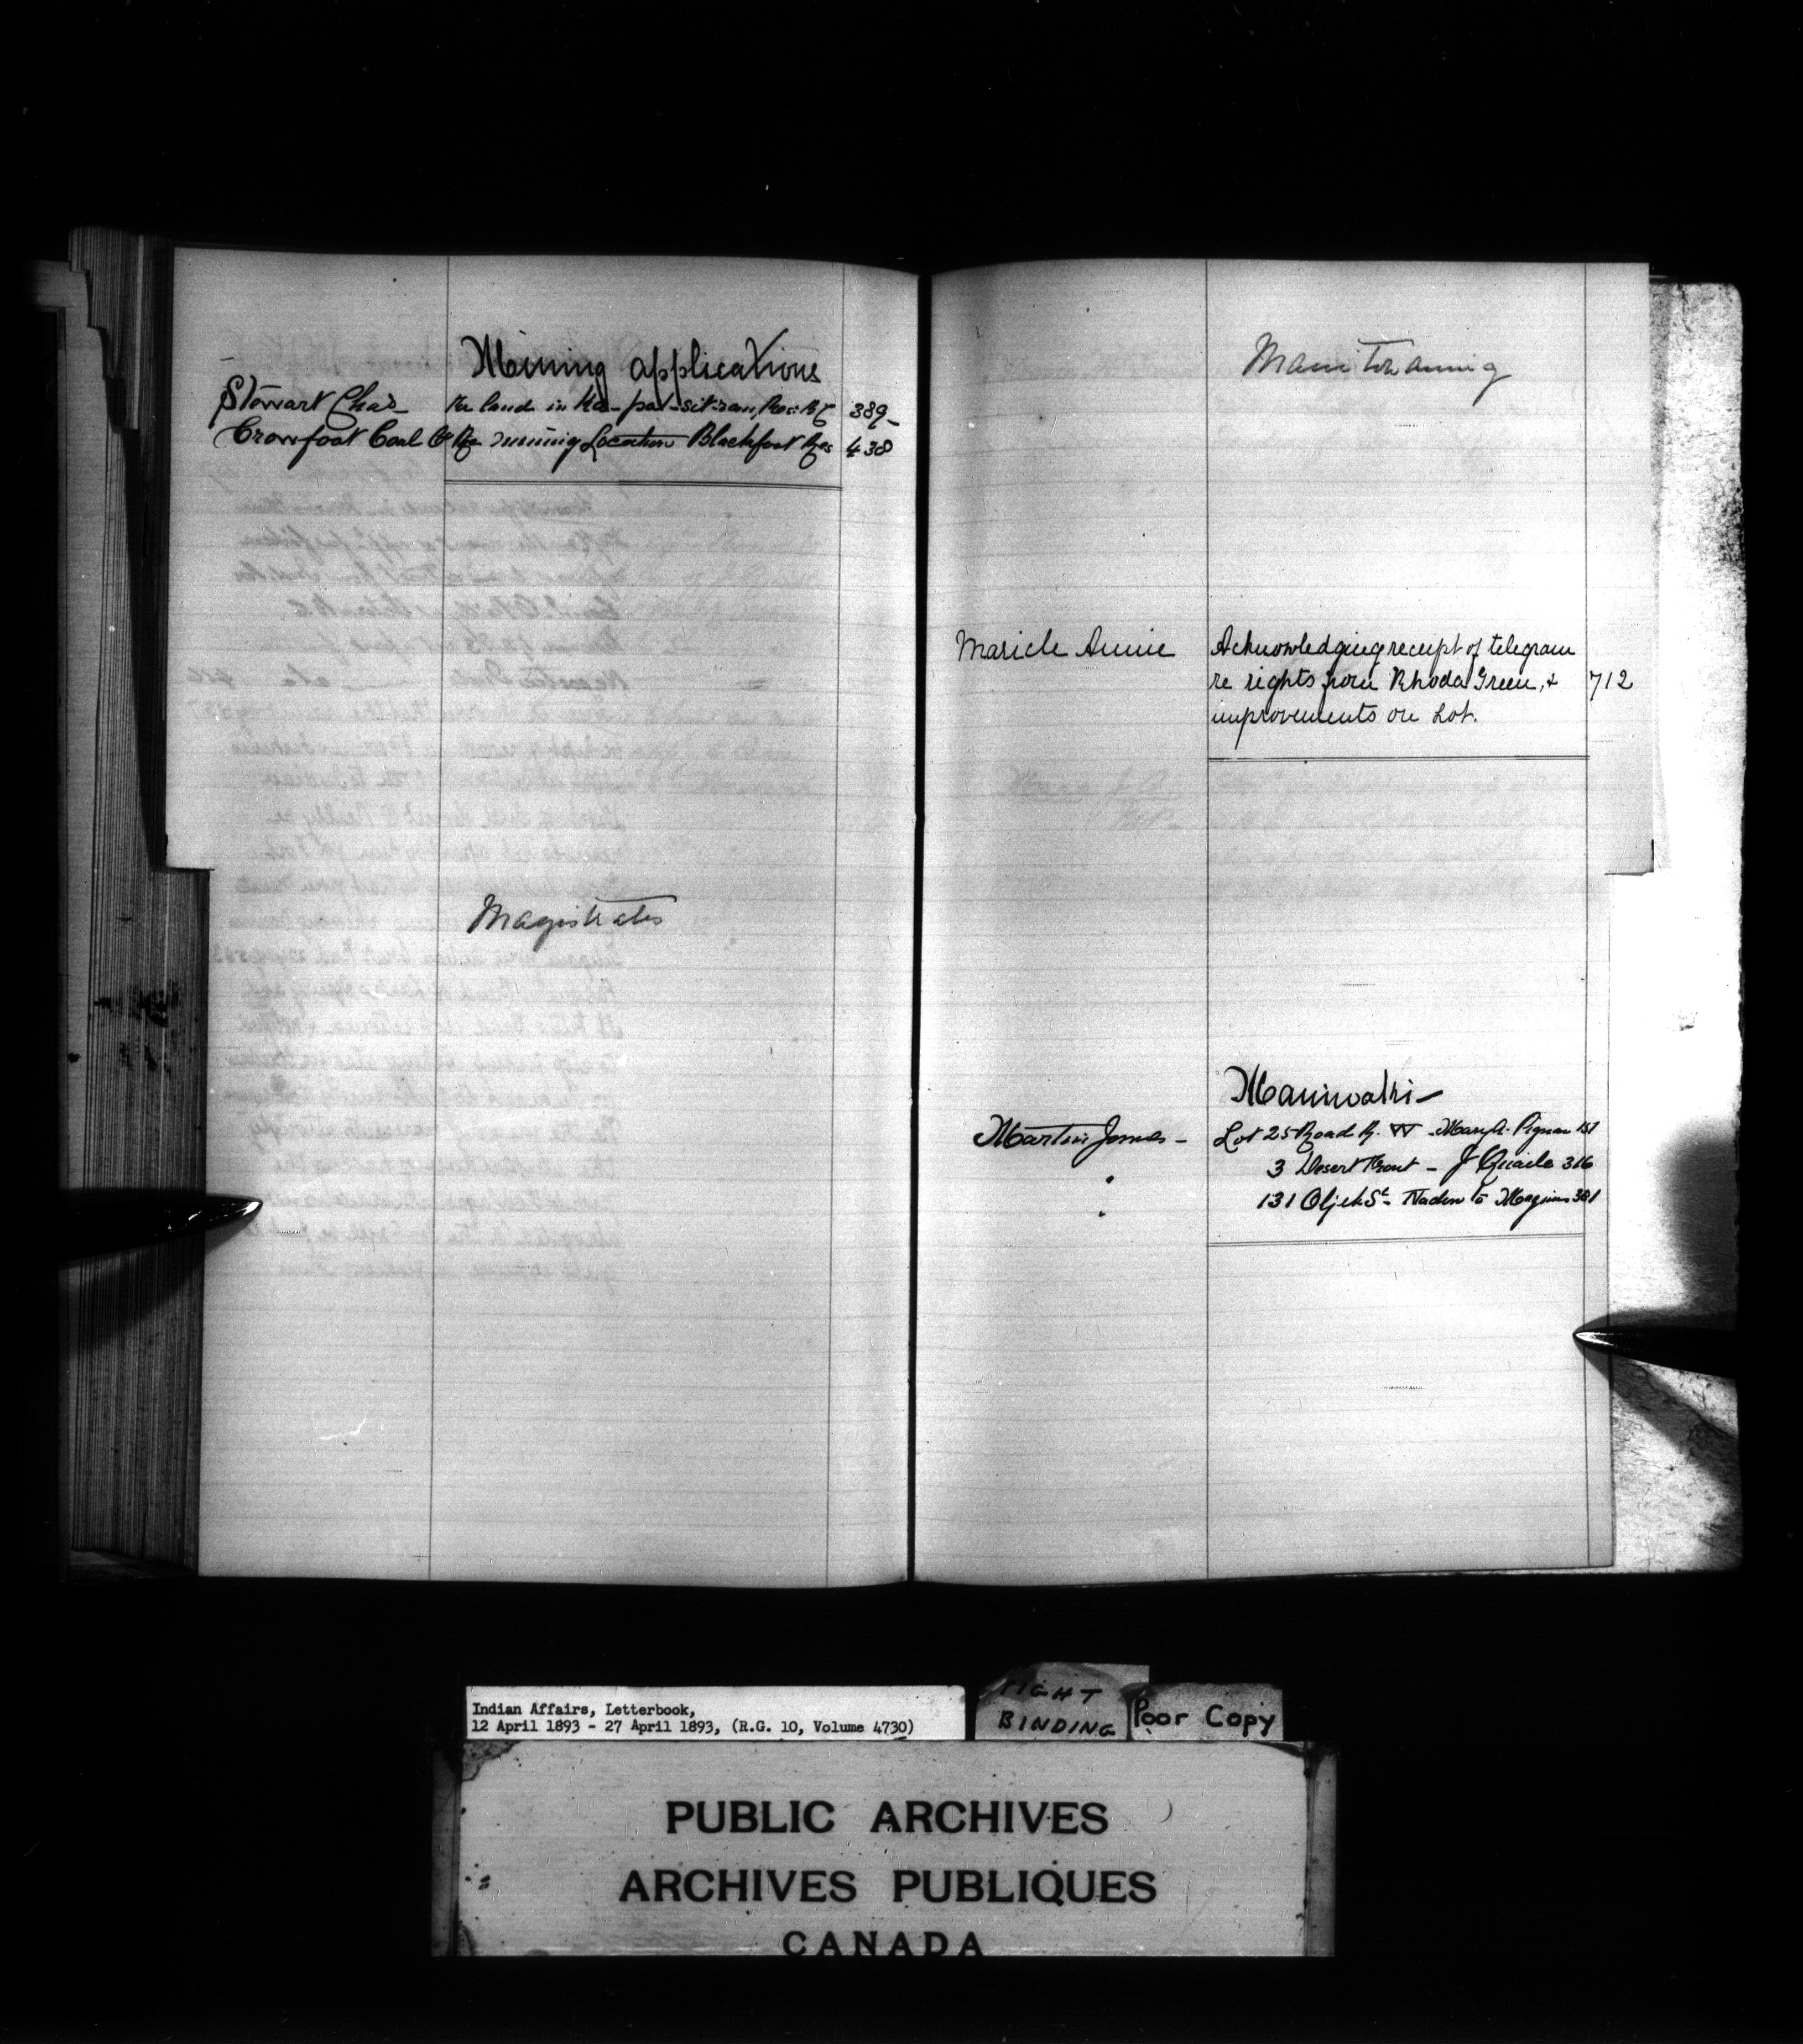 Mining applications
Stewart Chas Re land in Ka-pat-sit-san, Res: B C 389
Crowfoot Coal Co Re mining Location Blackfoot Res 438
Magistrates
Manitowaning
Maricle Annie Acknowledging receipt of telegram
re rights from Rhoda Green, & 712
improvements on Lot.
Maniwaki
Martin James - Lot 25 Road R. W - Mary A. 151
3 Desert Front - J Quaile 316
131 St - Naden to Maginis 381
Indian Affairs, Letterbook,
12 April 1893 - 27 April 1893, (R.G. 10, Volume 4730)
TIGHT
BINDING
Poor Copy
PUBLIC ARCHIVES
ARCHIVES PUBLIQUES
CANADA